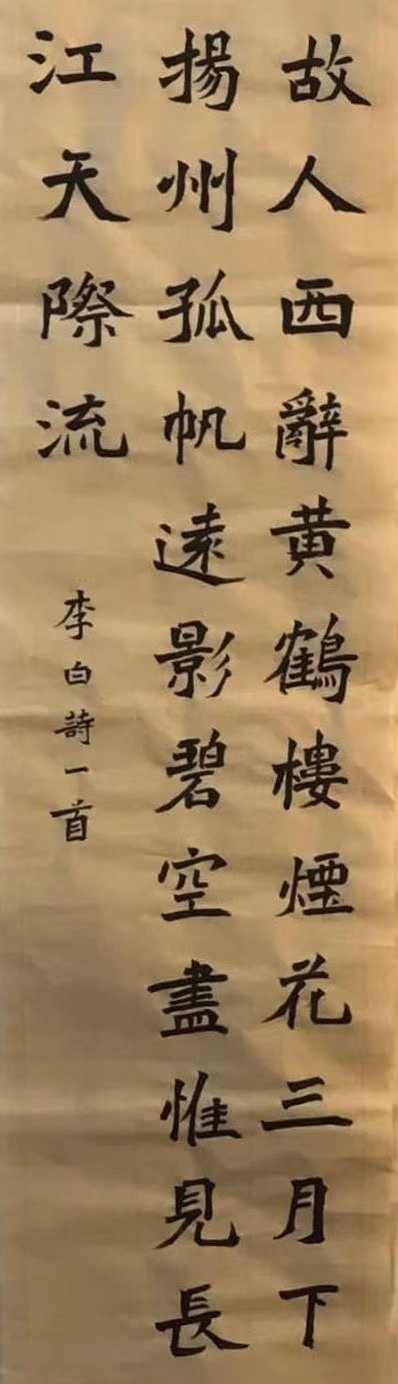 故人西辭黄鶴樓煙花三月下
揚州孤帆遠影碧空盡惟見長
江天際流
李白詩一首